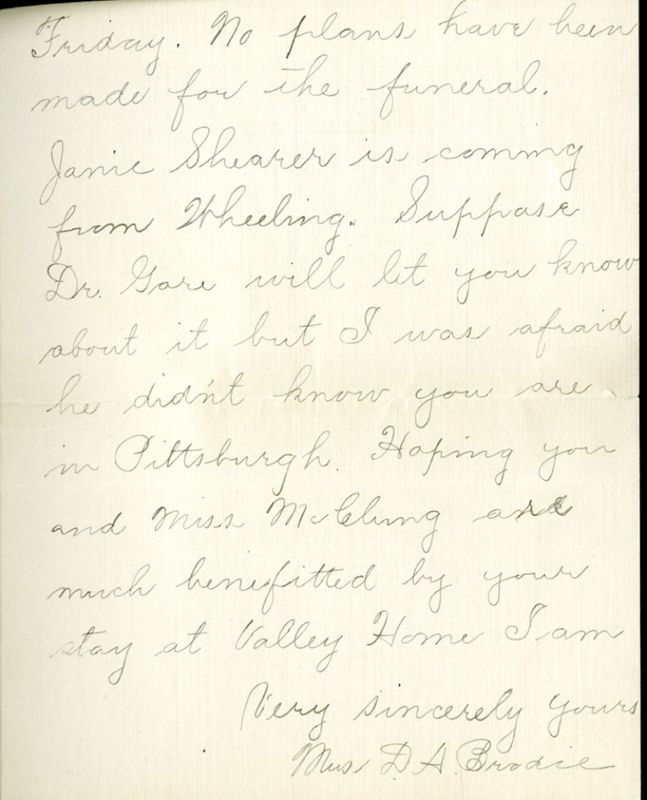 Friday. No plans have been
made for the funeral.
Janie Shearer is coming
from Wheeling. Suppose
Dr. Gore will let you know
about it but I was afraid
he didn't know you are
in Pittsburgh. Hoping you
and Miss McClung are
much benefitted by your
stay at Valley Home I am
Very sincerely yours
Mrs. D. A. Brodie